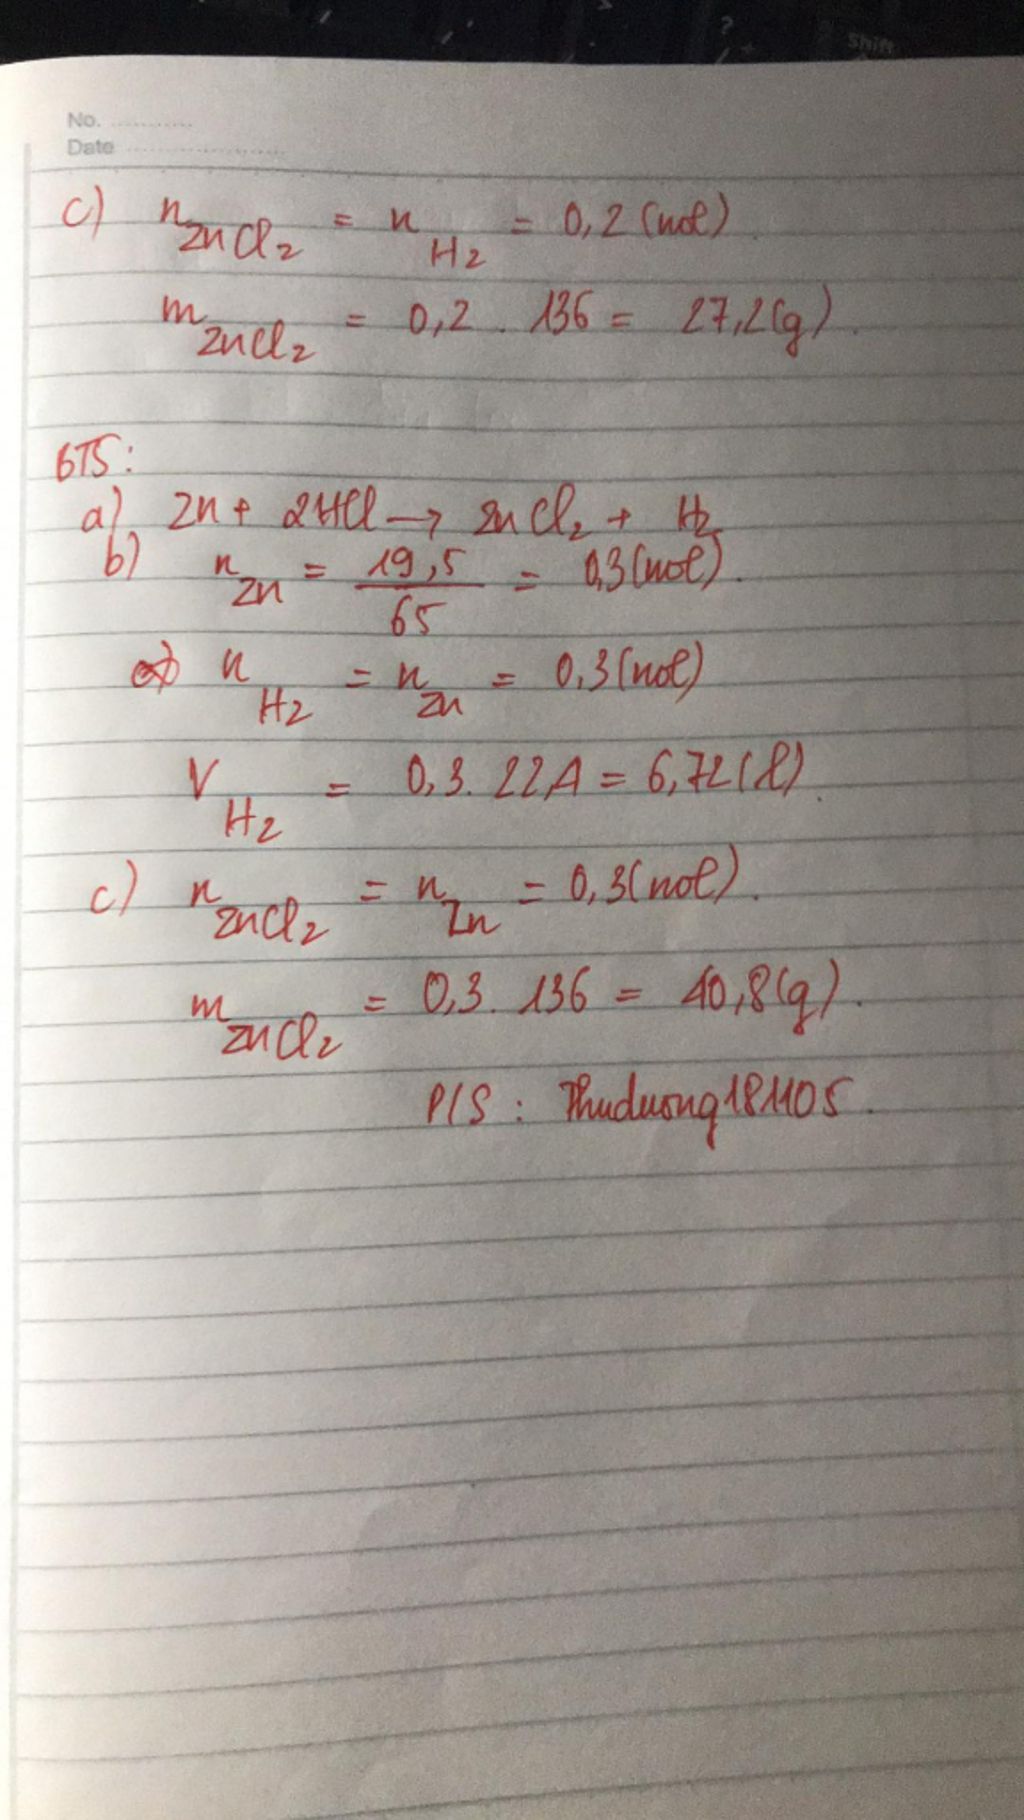 shift
No. ............
Date ........................
c) n ZnCl2 = n H2 = 0,2 (mol)
m ZnCl2 = 0,2 . 136 = 27,2(g).
BT5:
a) Zn + 2HCl → ZnCl2 + H2
b) n Zn = 19,5/65 = 0,3(mol).
n H2 = n Zn = 0,3(mol)
V H2 = 0,3. 22,4 = 6,72(l).
c) n ZnCl2 = n Zn = 0,3(mol).
m ZnCl2 = 0,3. 136 = 40,8(g).
P/S : Thuduong181105.